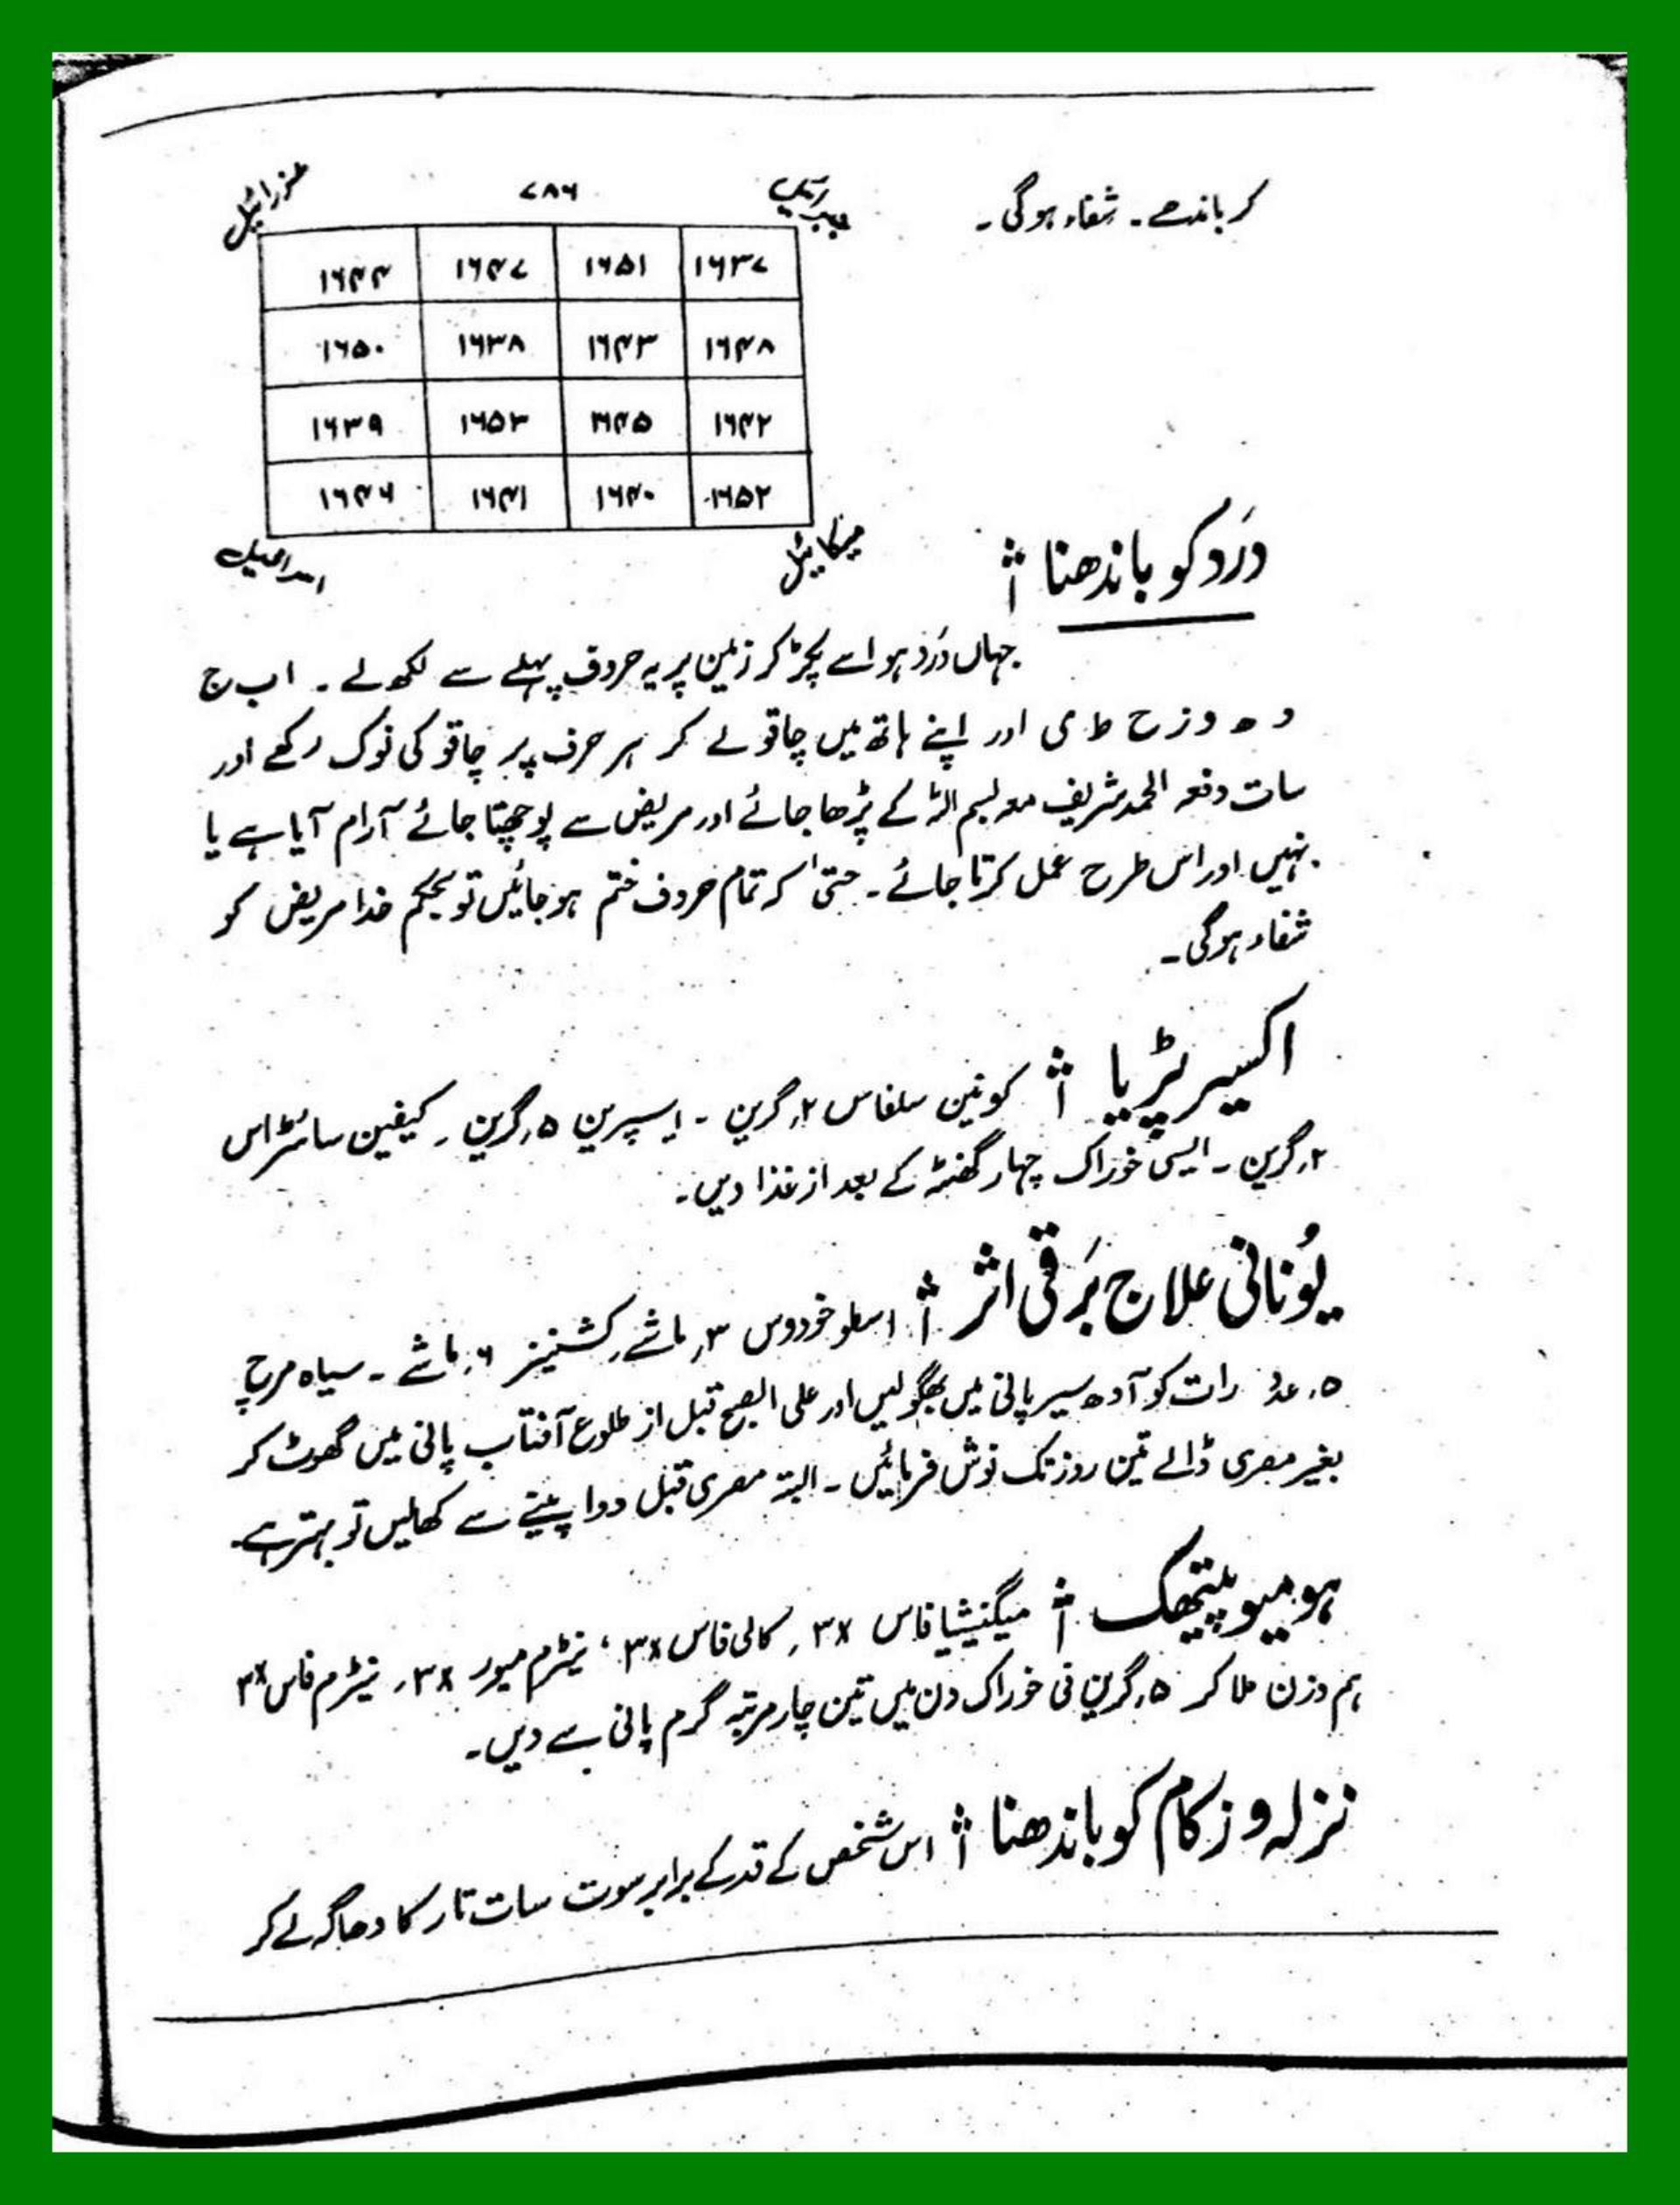 کر باندھے۔ شفاء ہوگی۔
جبرائیل ۷۸۶ عزرائیل
۱۶۴۴ ۱۶۴۷ ۱۶۵۱ ۱۶۳۷
۱۶۵۰ ۱۶۳۸ ۱۶۴۳ ۱۶۴۸
۱۶۳۹ ۱۶۵۳ ۱۶۴۵ ۱۶۴۲
۱۶۴۶ ۱۶۴۱ ۱۶۴۰ ۱۶۵۲
میکائیل اسرافیل
دَرد کو باندھنا
جہاں دَرد ہو اسے پکڑ کر زمین پر یہ حروف پہلے سے لکھ لے۔ ا ب ج
د ہ و ز ح ط ی اور اپنے ہاتھ میں چاقو لے کر ہر حرف پر چاقو کی نوک رکھے اور
سات دفعہ الحمد شریف معہ بسم اللہ کے پڑھا جائے اور مریض سے پوچھتا جائے آرام آیا ہے یا
نہیں اور اس طرح عمل کرتا جائے۔ حتیٰ کہ تمام حروف ختم ہو جائیں تو بحکم خدا مریض کو
شفاء ہوگی۔
اکسیر پڑیا کونین سلفاس ۲ گرین۔ ایسپرین ۵ گرین۔ کیفین سائٹراس
۲ گرین۔ ایسی خوراک چہار گھنٹہ کے بعد از غذا دیں۔
یُونانی علاج بَرقی اثر اسطوخودوس ۳ ماشے، کشنیز ۶ ماشے۔ سیاہ مرچ
۵ عدد رات کو آدھ سیر پانی میں بھگو لیں اور علی الصبح قبل از طلوع آفتاب پانی میں گھوٹ کر
بغیر مصری ڈالے تین روز تک نوش فرمائیں۔ البتہ مصری قبل دوا پینے سے کھالیں تو بہتر ہے۔
ہومیوپیتھک میگنیشیا فاس ۳x، کالی فاس ۳x، نیٹرم میور ۳x، نیٹرم فاس ۳x
ہم وزن ملا کر ۵ گرین فی خوراک دن میں تین چار مرتبہ گرم پانی سے دیں۔
نزلہ و زکام کو باندھنا اس شخص کے قد کے برابر سوت سات تار کا دھاگہ لے کر